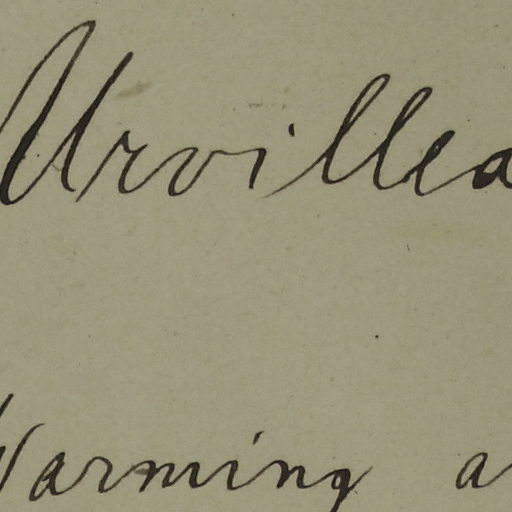 Urvillea
Warming a